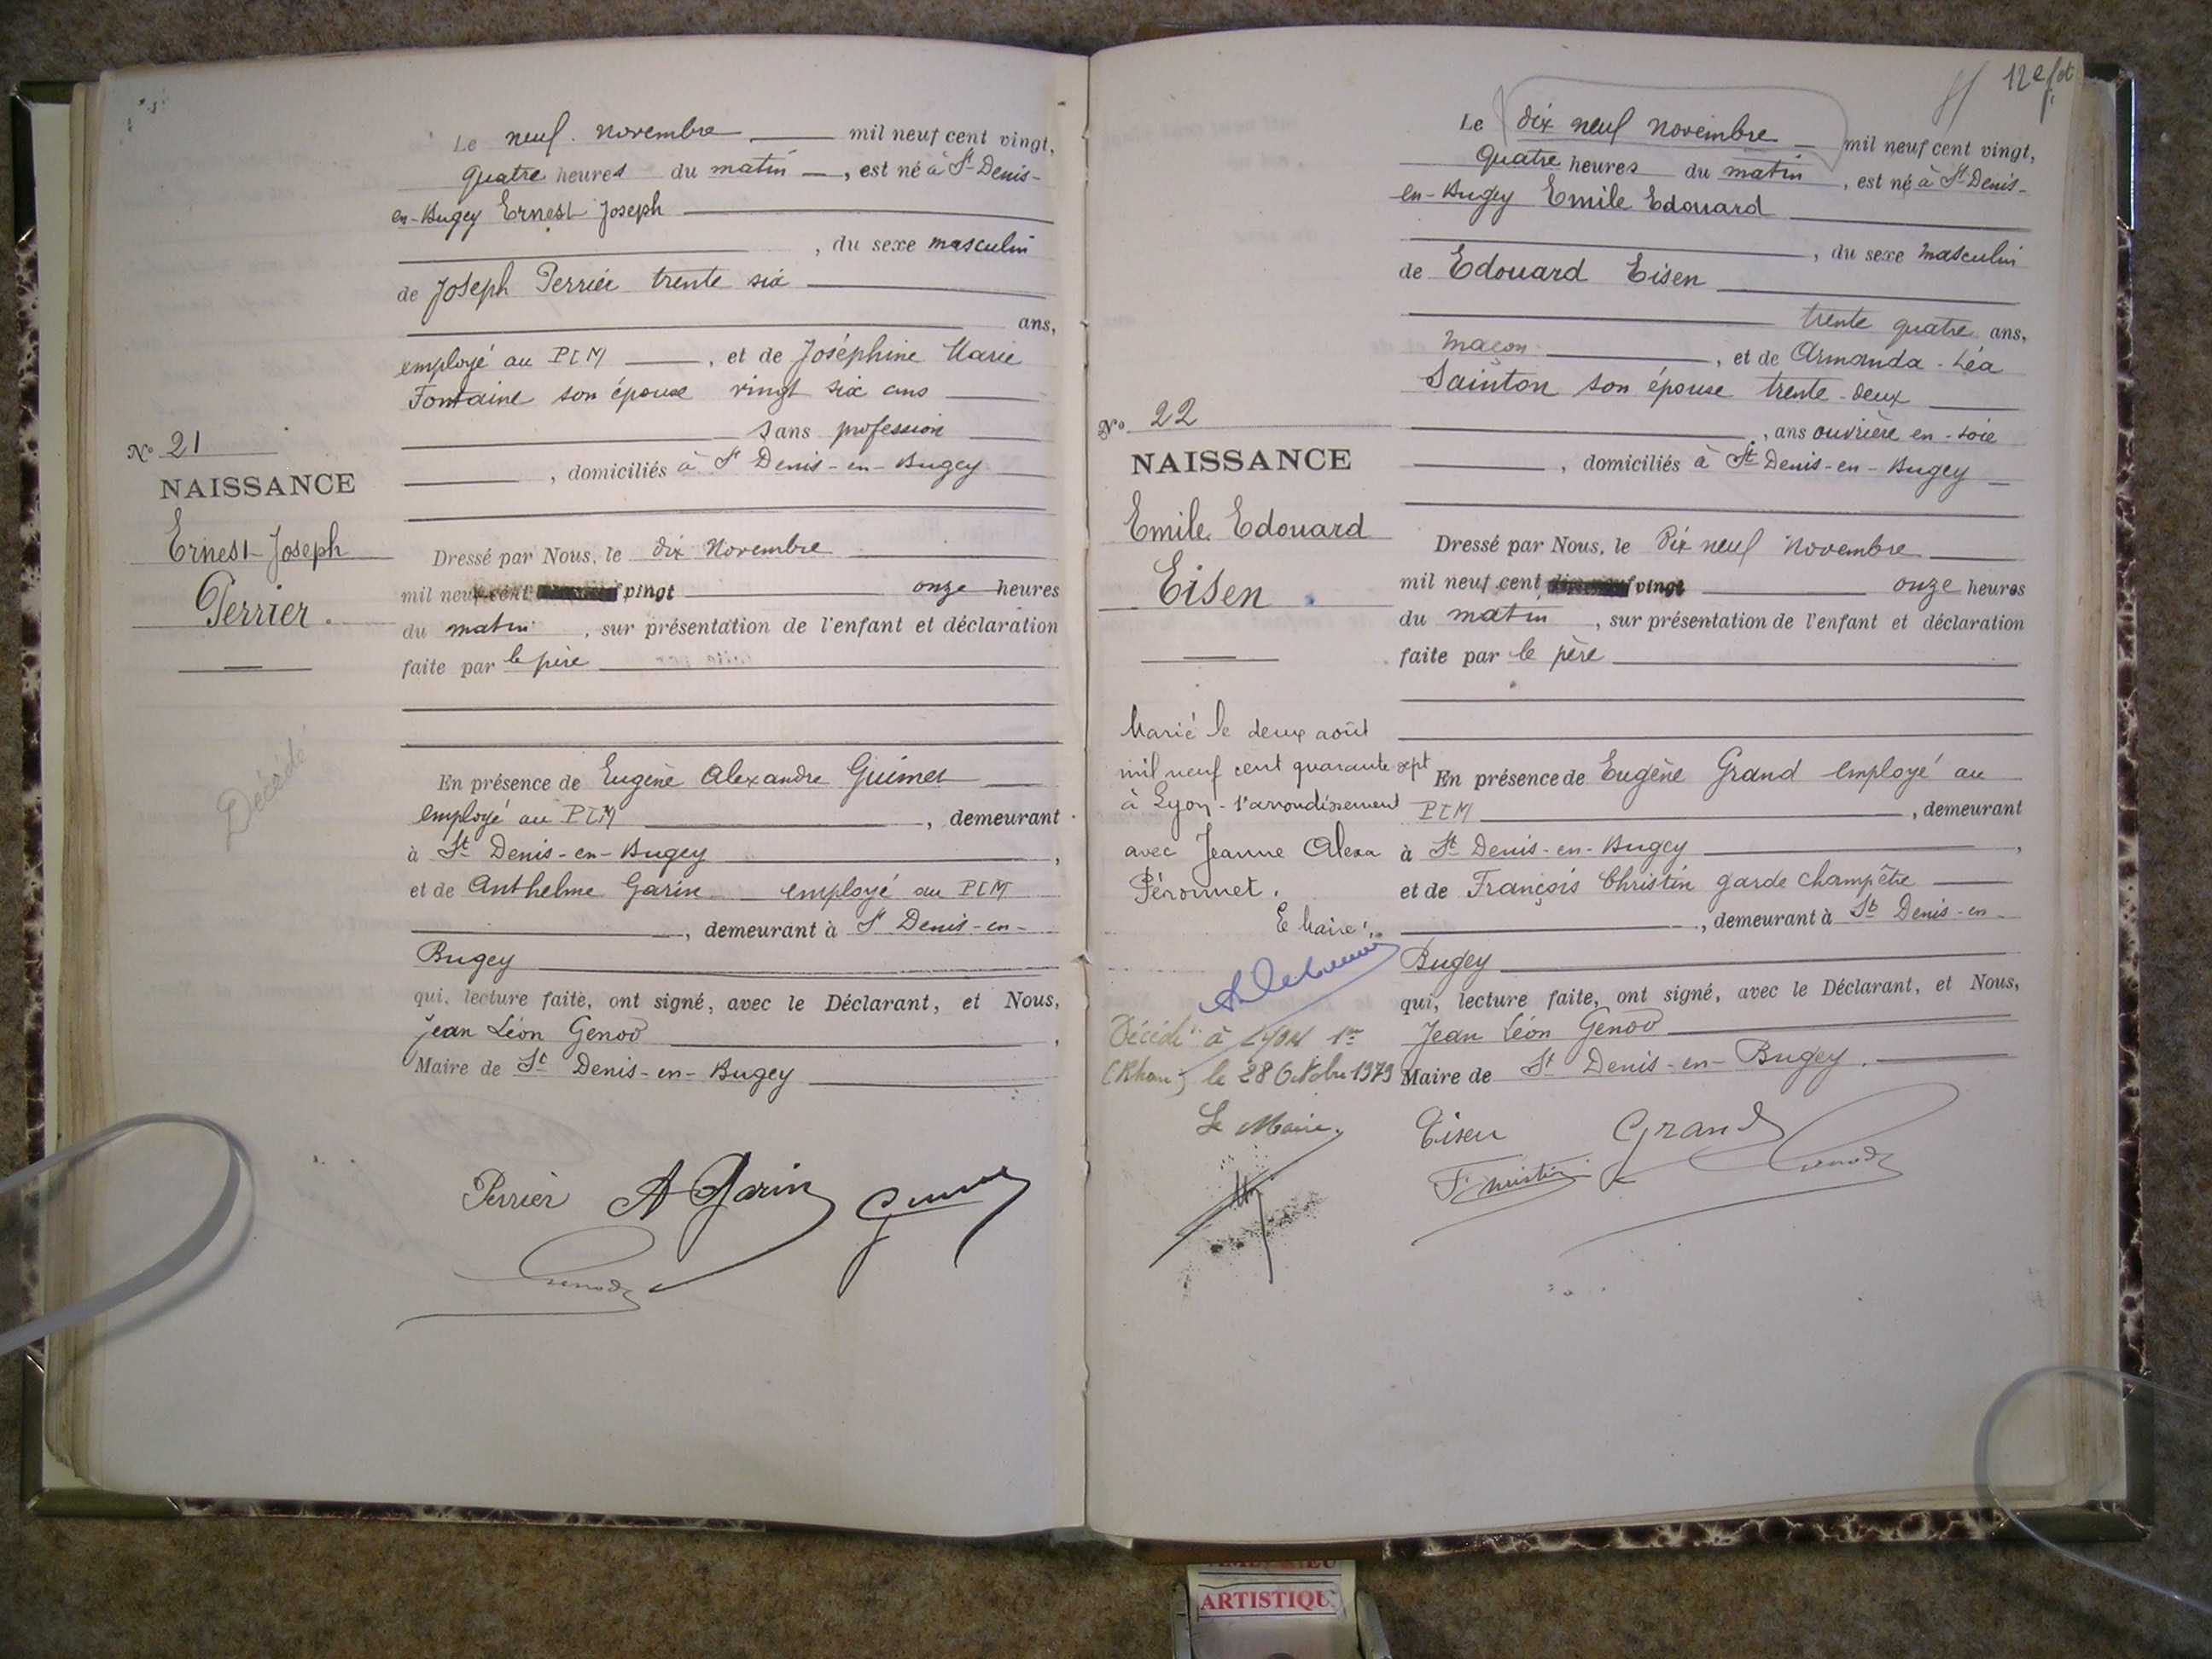 Le neuf novembre mil neuf cent vingt,
quatre heures du matin, est né à St Denis-
en-Bugey Ernest Joseph
, du sexe masculin
de Joseph Perrier trente six
ans,
employé au PLM, et de Joséphine Marie
Fontaine son épouse vingt six ans
sans profession
, domiciliés à St Denis-en-Bugey
No 21
NAISSANCE
Ernest Joseph
Perrier.
Décédé
Dressé par Nous, le dix Novembre
mil neuf cent vingt onze heures
du matin, sur présentation de l'enfant et déclaration
faite par le père
En présence de Eugène Alexandre Guimet
employé au PLM, demeurant
à St Denis-en-Bugey,
et de Anthelme Garin employé au PLM
, demeurant à St Denis-en-
Bugey
qui, lecture faite, ont signé, avec le Déclarant, et Nous,
Jean Léon Genod,
Maire de St Denis-en-Bugey
Perrier A Garin
Genod
12e fet
Le dix neuf novembre mil neuf cent vingt,
quatre heures du matin, est né à St Denis-
en-Bugey Emile Edouard
, du sexe masculin
de Edouard Eisen
trente quatre ans,
maçon, et de Armanda-Léa
Sainton son épouse trente-deux
, ans ouvrière en-soie
, domiciliés à St Denis-en-Bugey
No 22
NAISSANCE
Emile Edouard
Eisen
Marié le deux août
mil neuf cent quarante sept
à Lyon-1er arrondissement
avec Jeanne Alexa
Péronnet.
Le Maire,
Décédé à Lyon 1er
(Rhône) le 28 Octobre 1979
Le Maire,
Dressé par Nous, le Dix neuf Novembre
mil neuf cent vingt onze heures
du matin, sur présentation de l'enfant et déclaration
faite par le père
En présence de Eugène Grand employé au
PLM, demeurant
à St Denis-en-Bugey,
et de François Christin garde champêtre
, demeurant à St Denis-en-
Bugey
qui, lecture faite, ont signé, avec le Déclarant, et Nous,
Jean Léon Genod
Maire de St Denis-en-Bugey.
Eisen Grand
Genod
ARTISTIQU